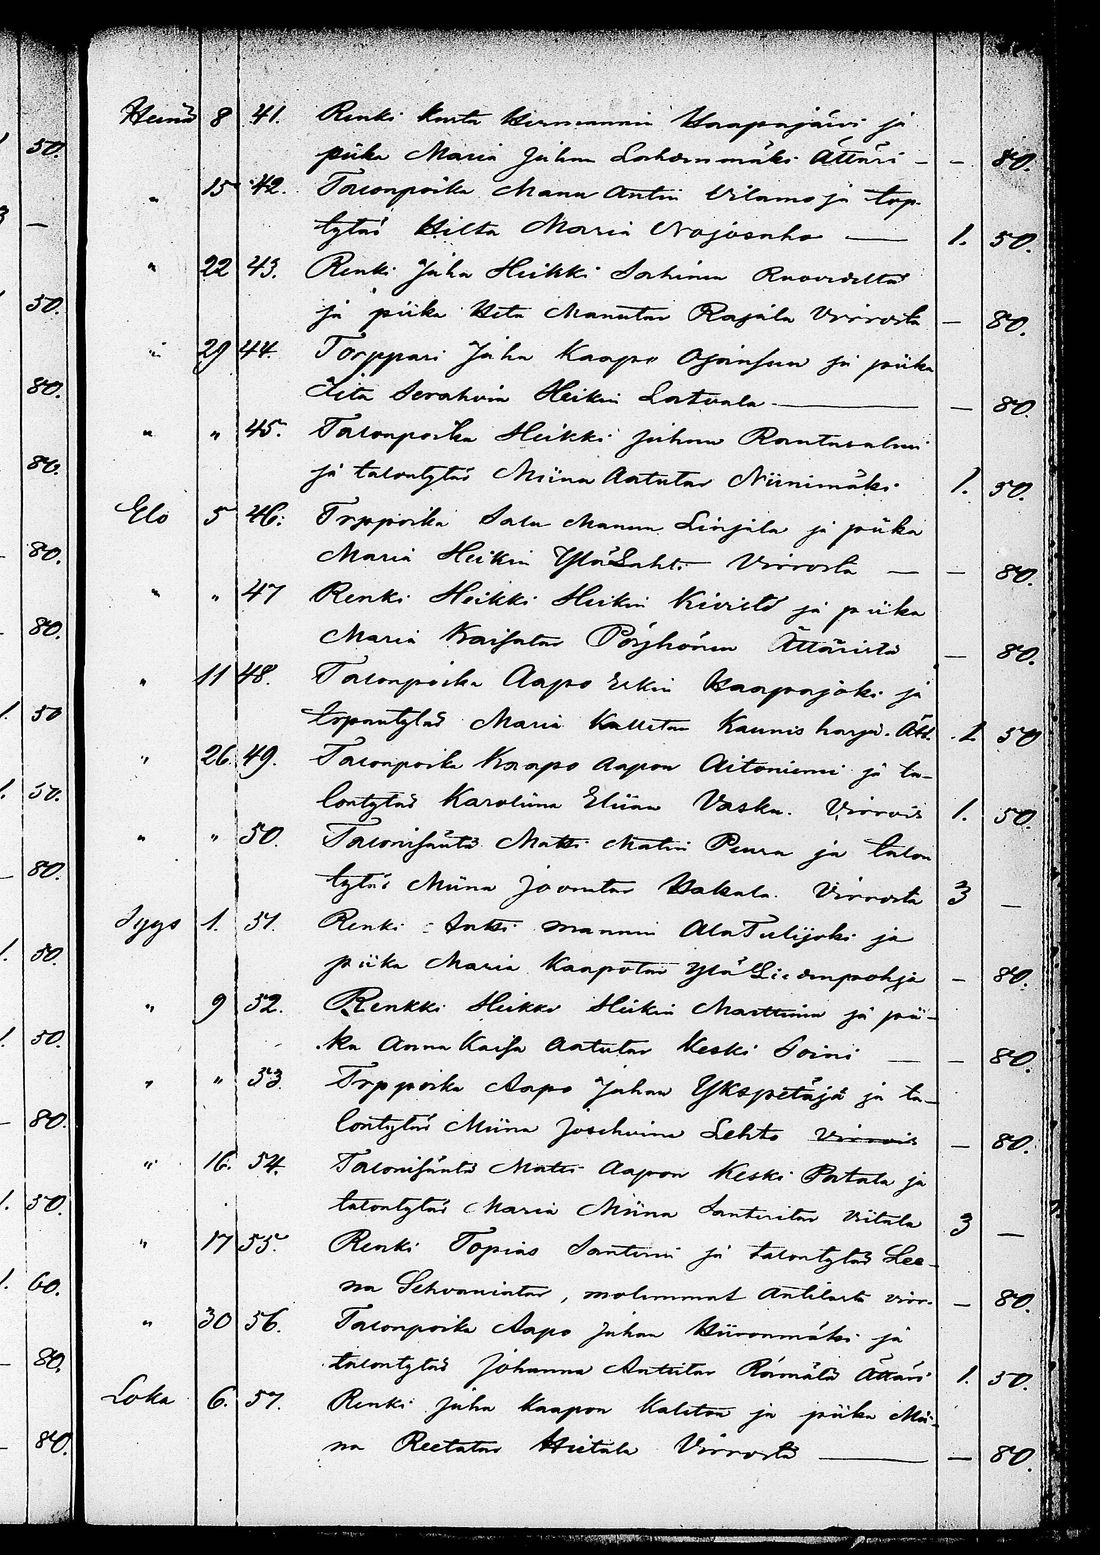 50.
—
50.
80.
80.
80.
80.
50
50.
80.
50.
50.
80.
50.
60.
80.
80.
Heinä 8 41. Renki Kusta Hermannin Haapajärvi ja
piika Maria Juhan Lahdenmäki Ättäri — — 80.
" 15 42. Talonpoika Manu Antin ja top.
tytär Hilta Maria — 1. 50.
" 22 43. Renki Juha Heikki Sahinen Ruovedeltä
ja piika Heta Manutar Rajala Virroista — 80.
" 29 44. Torppari Juha Kaapo ja piika
Iita Serahvia Heikin Latvala — — 80.
" " 45. Talonpoika Heikki Juhan Rantasalmi
ja talontytär Miina Aatutar Niinimäki 1. 50.
Elo 5 46. Trppoika Salu Manun Linjala ja piika
Maria Heikin Ylä Lahti Virroista — — 80.
" " 47 Renki Heikki Heikin Kivistö ja piika
Maria Kaisatar Pörjhönen Ättäristä — 80.
" 11 48. Talonpoika Aapo Erkin Haapajoki ja
topantytär Maria Kallitar Kaunisharju. Ätt. 1 50
" 26. 49. Talonpoika Kaapo Aapon Aitoniemi ja ta-
lontytär Karoliina Eliian Vaska. Virrois 1. 50.
" " 50. Talonisäntä Matti Matin Peura ja talon
tytär Miina Joonatar Hakala. Virroista 3 —
Syys 1. 51. Renki Antti Mannin Ala Tulijoki ja
piika Maria Kaapotar Ylä Liedenpohja — 80.
" 9 52. Renkki Heikki Heikin Marttinen ja pii-
ka Anna Kaisa Aatutar Keski Soini — — 80.
" " 53 Trppoika Aapo Juhan Ykspetäjä ja ta-
lontytär Miina Josehvina Lehto Virrois — 80.
" 16. 54. Talonisäntä Matti Aapon Keski Patala ja
talontytär Maria Miina Santeritar Viitala 3 —
" 17 55. Renki Topias Santerin ja talontytär Lee-
na Sehvaniatar, molemmat Antilasta virr. — 80.
" 30 56. Talonpoika Aapo Juhan Hiironmäki ja
talontytär Johanna Antitar Rämälä Ättäri 1. 50.
Loka 6. 57. Renki Juha Kaapon Kaleton ja piika Mii-
na Reetatar Hietala Virroista — — 80.